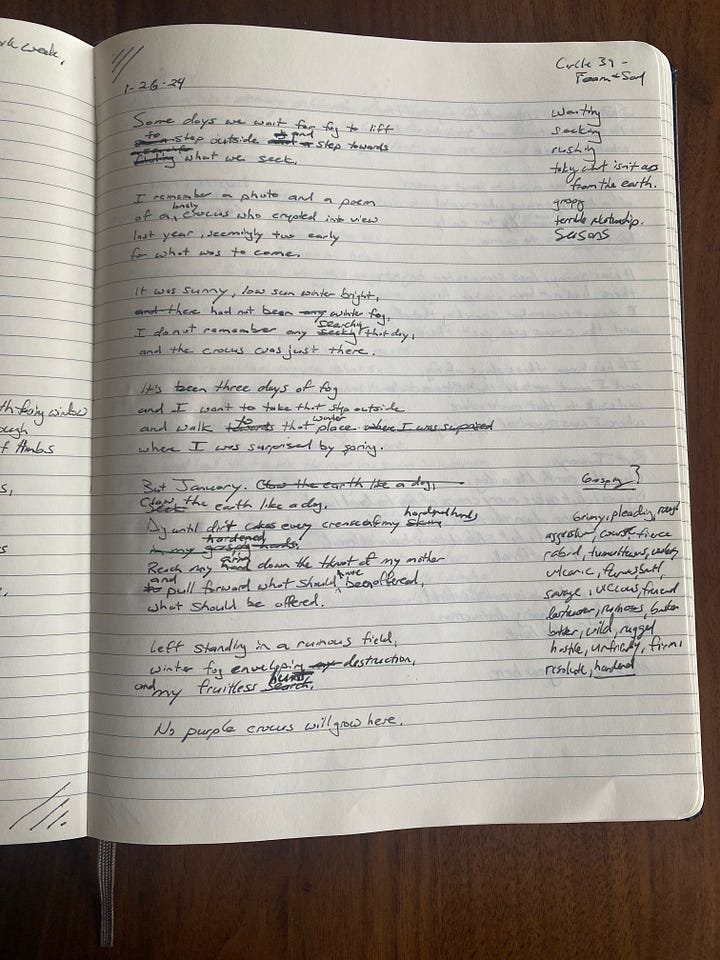 work week,
th foggy window
ough
f thumbs
s,
s
1-26-24
Circle 39 -
Foam + Soul
Some days we wait for fog to lift
to step outside and step towards
finding what we seek.
I remember a photo and a poem
of a lonely crocus who crept into view
last year, seemingly two early
for what was to come.
It was sunny, low sun winter bright,
and there had not been any winter fog.
I do not remember any seeking searching that day,
and the crocus was just there.
It's been three days of fog
and I want to take that step outside
and walk towards to that winter place where I was suprised
where I was surprised by spring.
But January. Claw the earth like a dog,
Claw seek the earth like a dog.
Dig until dirt cakes every crevice of my skin hardened hands,
in my graspy hardened hands,
Reach my hand arm down the throat of my mother
to and pull forward what should have been offered,
what should be offered.
Left standing in a ruinous field,
winter fog enveloping my destruction,
and my fruitless search. hunt
No purple crocus will grow here.
Wanting
seeking
rushing
taking what isn't ours
from the earth.
graspy
terrible relationship.
Seasons
Graspy }
Grimy, pleading, rough
aggressive, coarse, fierce
rabid, tumultuous,
volcanic,
savage, vicious, frenzied
ruinous, broken
bitter, wild, rugged
hostile, unfriendly, firm,
resolute, hardened